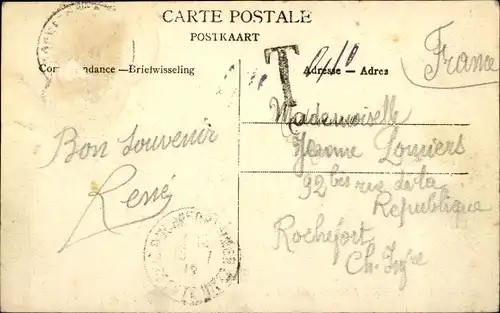 CARTE POSTALE
POSTKAART
Correspondance — Briefwisseling
Adresse — Adres
T
France
Bon Souvenir
René
Mademoiselle
Jeanne
92 bis rue de la
Republique
Rochefort
Ch. Infre